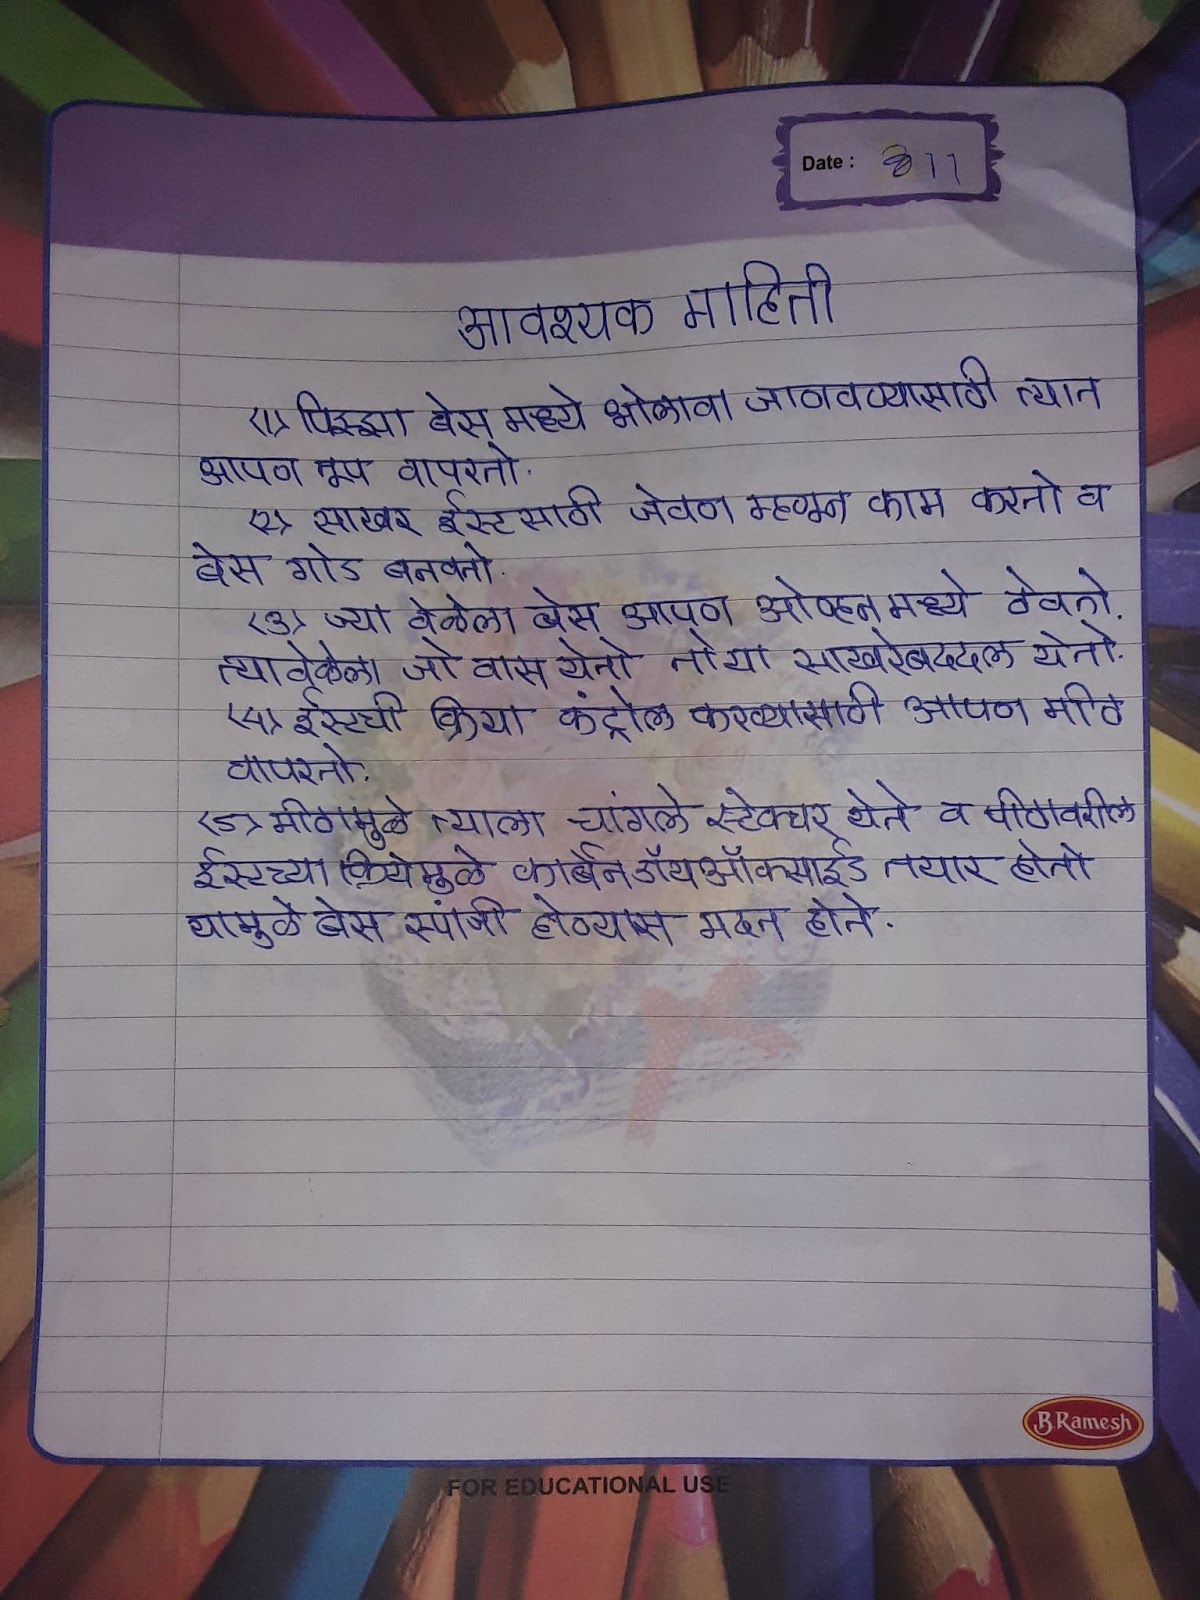 Date : 811
आवश्यक माहिती
(1) पिझ्झा बेस् मध्ये ओलावा जाणवण्यासाठी त्यात
आपण तूप वापरतो.
(2) साखर ईस्टसाठी जेवण म्हणून काम करतो व
बेस गोड बनवतो.
(3) ज्या वेळेला बेस् आपण ओव्हन मध्ये ठेवतो.
त्यावेळेला जो वास येतो तो या साखरेबददल येतो.
(4) ईस्टची क्रिया कंट्रोल करण्यासाठी आपण मीठ
वापरतो.
(5) मीठामुळे त्याला चांगले स्टेक्चर् येते व पीठावरील
ईस्टच्या क्रियेमुळे कार्बन डॉयऑक्साईड तयार होतो
यामुळे बेस स्पांजी होण्यास मदत होते.
B Ramesh
FOR EDUCATIONAL USE